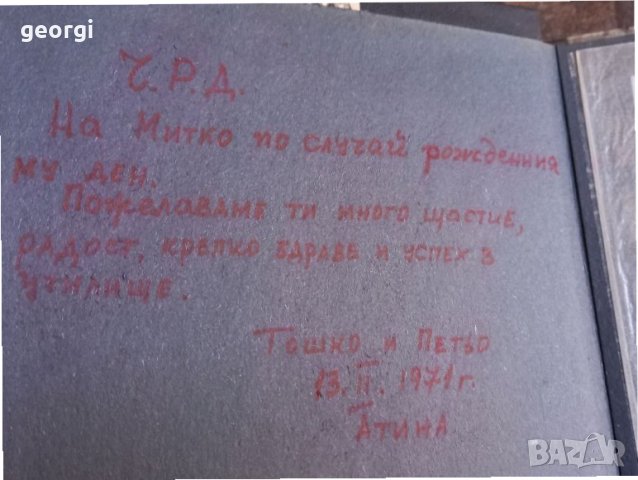 georgi
Ч.Р.Д.
На Митко по случай рожденния
му ден.
Пожелаваме ти много щастие,
радост, крепко здраве и успех в
училище.
Тошко и Петьо
13.II.1971г.
Атина
BAZAR